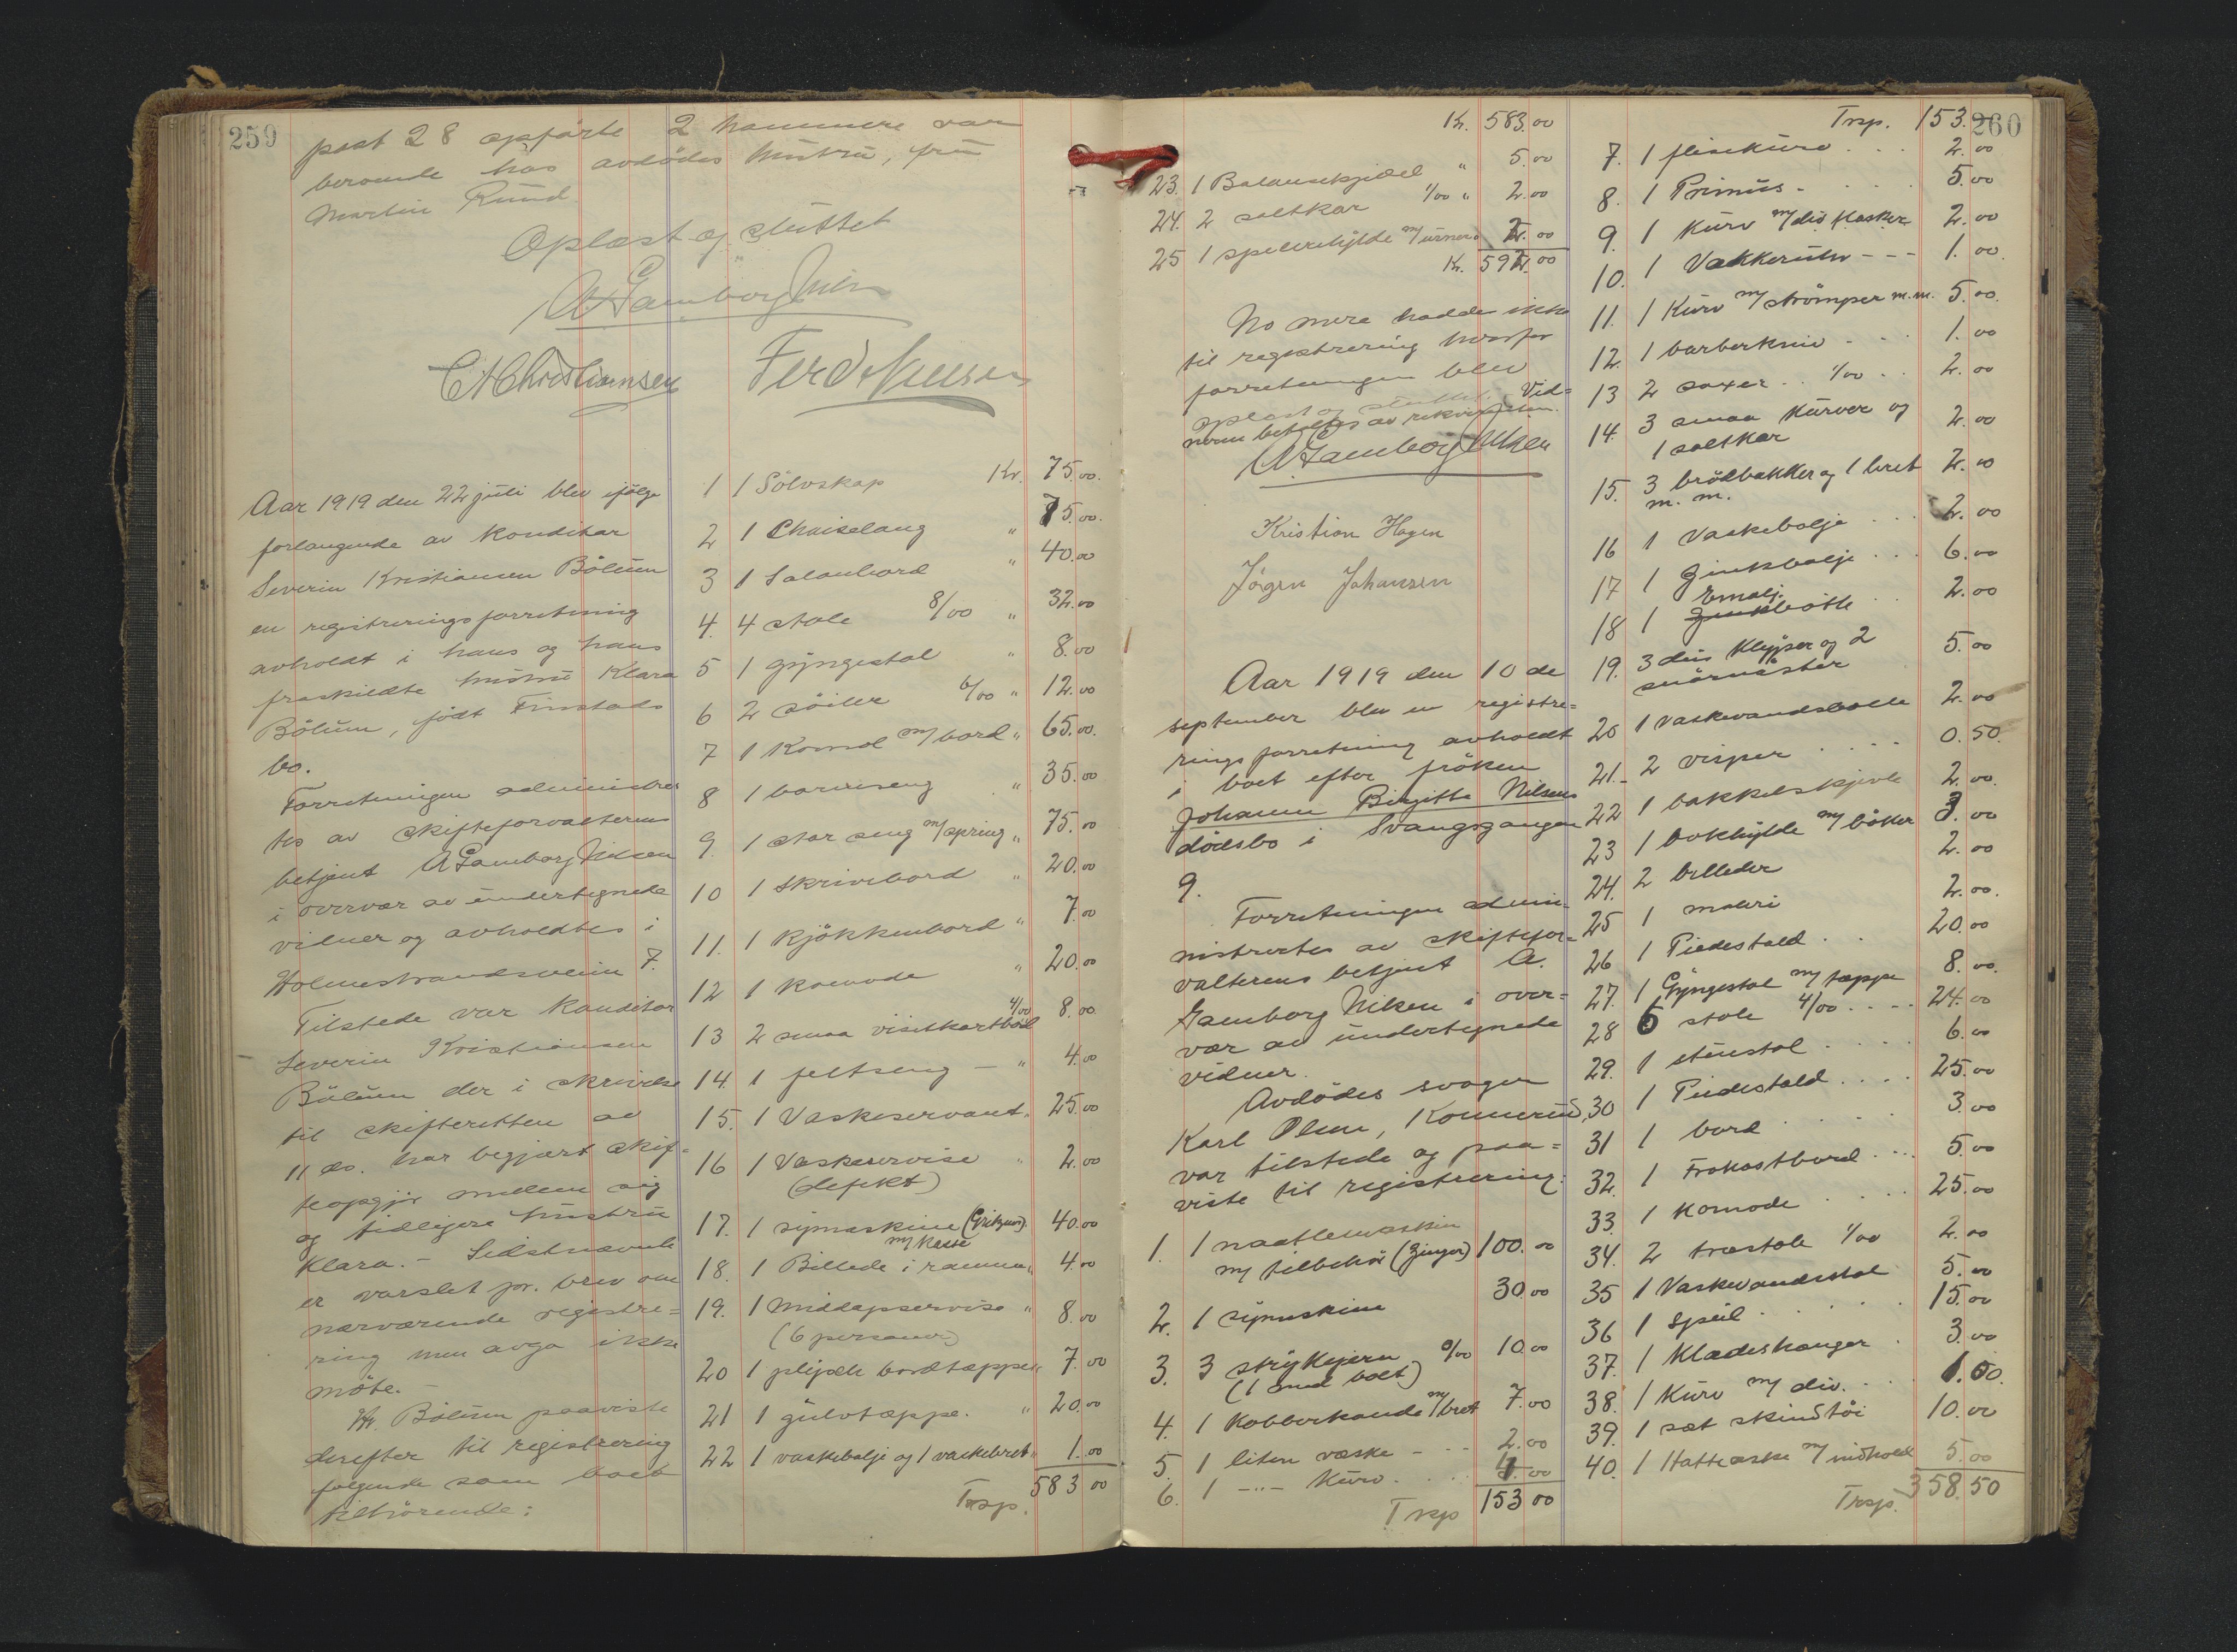 259
post 28 opførte 2 hammere var
beroende hos avdødes hustru, fru
Martin Ruud
Oplæst og sluttet
A Gamborg Nilsen
C A Christiansen Ferd. Nilsen
Aar 1919 den 22 juli blev ifølge
forlangende av konditor
Severin Kristiansen Bölum
en registreringsforretning
avholdt i hans og hans
fraskildte hustru Klara
Bölum, født Finstads
bo.
Forretningen administrer
tes av skifteforvalterens
betjent A Gamborg Nilsen
i overvær av undertegnede
vidner og avholdtes i
Holmestrandsveien 7.
Tilstede var konditor
Severin Kristiansen
Bölum der i skrivelse
til skifteretten av
11 ds. har begjært skif-
teopgjør mellem sig
og tidligere hustru
Klara. - Sidstnævnte
er varslet pr. brev om
nærværende registre=
ring men avga ikke
møte. -
Hr. Bölum paaviste
derefter til registrering
følgende som boet
tilhörende:
1 1 Sölvskap Kr. 75.00.
2 1 Chaiselong " 75.00.
3 1 Salonbord " 40.00
4. 4 stole 8/00 " 32.00
5 1 gyngestol " 8.00
6 2 söiler 6/00 " 12.00
7 1 Komod m/ bord " 65.00.
8 1 barneseng " 35.00
9. 1 stor seng m/ spring " 75.00
10 1 Skrivebord " 20.00
11. 1 kjökkenbord " 7.00
12 1 komode " 20.00
13 2 smaa visitkortbord 4/00 8.00
14. 1 feltseng - " 4.00
15. 1 Vaskeservant " 25.00
16 1 Vaskeservise " 2.00
(defekt)
17. 1 symaskine (Gritzner) 40.00
m/ kasse
18. 1 Billede i ramme " 4.00
19. 1 middagsservise " 8.00
(6 personer)
20 1 plysch bordtæppe " 7.00
21 1 gulvtæppe. " 20.00
22 1 vaskebalje og 1 vaskebret " 1.00
Trsp. 583 00
Kr. 583.00
23. 1 Balansekjedel " 5.00
24. 2 saltkar 1/00 " 2.00
25 1 speilehylde m/ urner " 2.00
Kr. 592.00
No mere hadde ikke
til registrering hvorfor
forretningen blev
oplæst og sluttet. Vid=
nerne betaltes av rekvirenten.
A Gamborg Nilsen
Kristian Hagen
Jögen Johansen
Aar 1919 den 10 de
september blev en registre=
ringsforretning avholdt
i boet efter fröken
Johanne Birgitte Nilsens
dödsbo i Svangsgangen
9.
Forretningen admi-
nistrertes av skiftefor=
valterens betjent A.
Gamborg Nilsen i over=
vær av undertegnede
vidner.
Avdödes svoger
Karl Olsen, Konnerud,
var tilstede og paa=
viste til registrering:
1. 1 naatlemaskin
m/ tilbehör (Zinger) 100.00
2. 1 symaskine 30.00
3. 3 strykejern 0/00 10.00
(1 med bolt)
4. 1 Kobberkande m/ bret 7.00
5. 1 liten væske - - - 2.00
6. 1 -"- Kurv. . . . 4.00
Trsp 153 00
260
Trsp. 153.
7. 1 flisekurv . . . 2.00
8. 1 Primus - . . . 5.00
9. 1 Kurv m/ div flasker 2.00
10. 1 Vækkeruhr - - - 1.00.
11. 1 Kurv m/ strömper m.m. 5.00.
12. 1 barberkniv - . . . 1.00
13 2 saxer . . 1/00 . . 2.00
14. 3 smaa kurver og 2.00
1 saltkar
15. 3 brödbakker og 1 bret 2.00
m. m.
16 1 Vaskebalje . . . 2.00
17 1 Zinkbalje . . . 6.00
18 1 Emalj. bötte . . 2.00
19. 3 dus klyper og 2 5.00
snörnöster
20 1 vaskevandsbolle 2.00
21. 2 visper . . . . 0.50.
22 1 bakkelskjevle 2.00.
23 1 bokhylde m/ böker 3.00
24. 2 billeder 2.00
25 1 maleri 2.00.
26 1 Piedestald . . 20.00
27. 1 Gyngestol m/ tæppe 8.00.
28 6 stole 4/00 . . . . 24.00
29. 1 stuestol . . . . 6.00
30 1 Piedestald . . . . 25.00
31 1 bord . . . . 3.00
32. 1 Frokostbord . . . 5.00
33. 1 Komode . . . . 25.00
34. 2 træstole 1/00 2.00
35 1 Vaskevandsstol 5.00
36 1 Speil . . . . . 15.00
37. 1 Klædeshænger . 3.00
38. 1 Kurv m/ div. . . . 1.00.
39. 1 sæt skindtöi 10.00
40. 1 Hatteæske m/ indhold 5.00
Trsp. 358.50